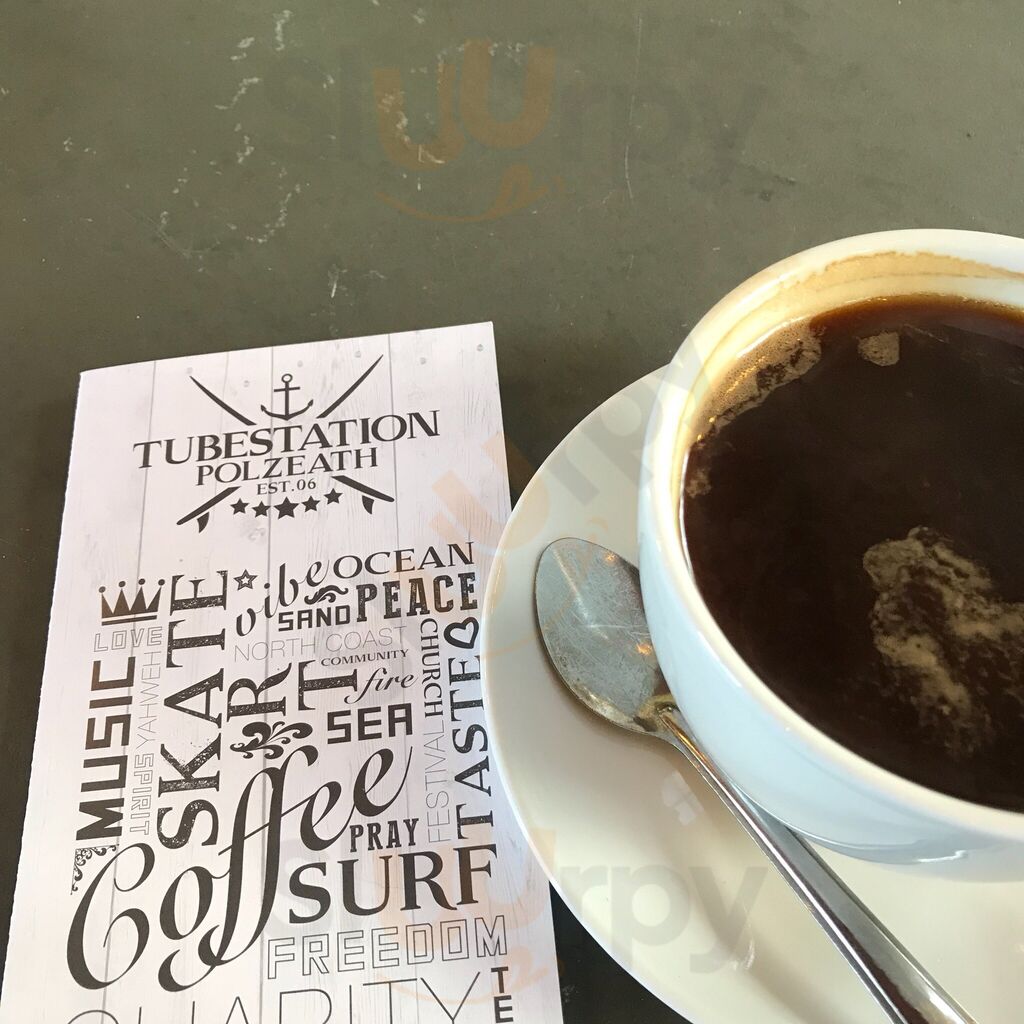 sluurpy
TUBESTATION
POLZEATH
EST.06
vibe
OCEAN
SAND
PEACE
LOVE
SKATE
NORTH COAST
ART
COMMUNITY
fire
CHURCH
TASTE
MUSIC
YAHWEH
SPIRIT
SEA
FESTIVAL
Coffee
PRAY
SURF
FREEDOM
sluurpy
sluurpy